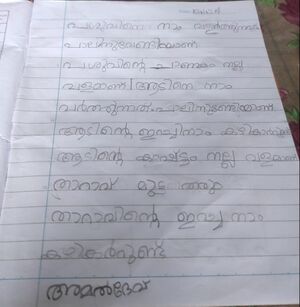 പശുവിനെ നാം വളർത്തുന്നത്
പാലിനുവേണ്ടിയാണ്
പശുവിന്റെ ചാണകം നല്ല
വളമാണ് ആടിനെ നാം
വർത്തുന്നത് പാലിനുണ്ടിയാണ്
ആടിന്റെ ഇറച്ചിനാം കഴികാറുണ്ട്
ആടിന്റെ കാഷ്ട്ടം നല്ല വളമാണ്
താറാവ് മുട്ട തരും
താറാവിന്റെ ഇറച്ച നാം
കഴികറുണ്ട്
അമൽദേവ്